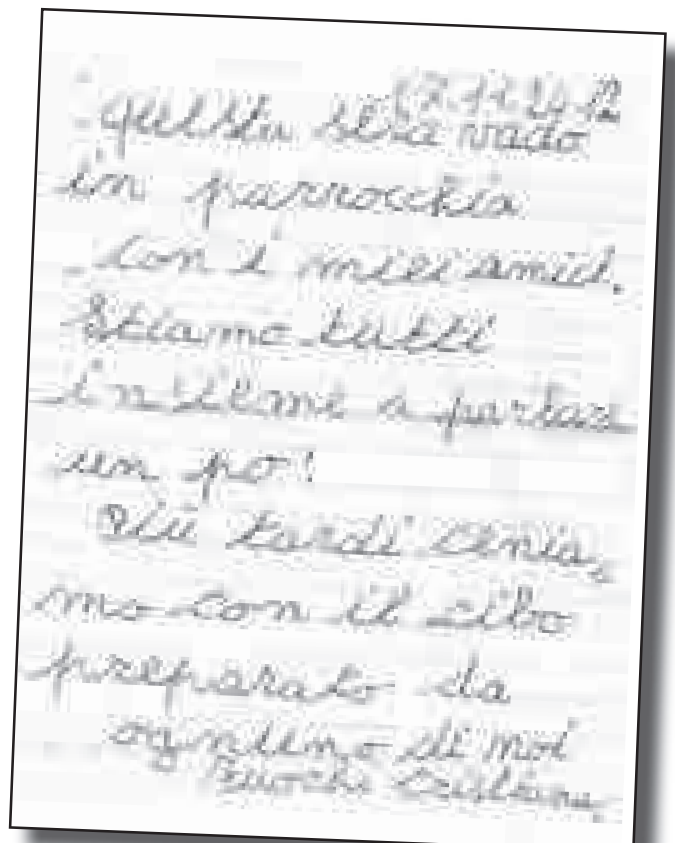 questa sera vado
in parrocchia
con i miei amici.
Stiamo tutti
insieme a parlare
un po'!
Più tardi cenia,
mo con il cibo
preparato da
ognuno di noi